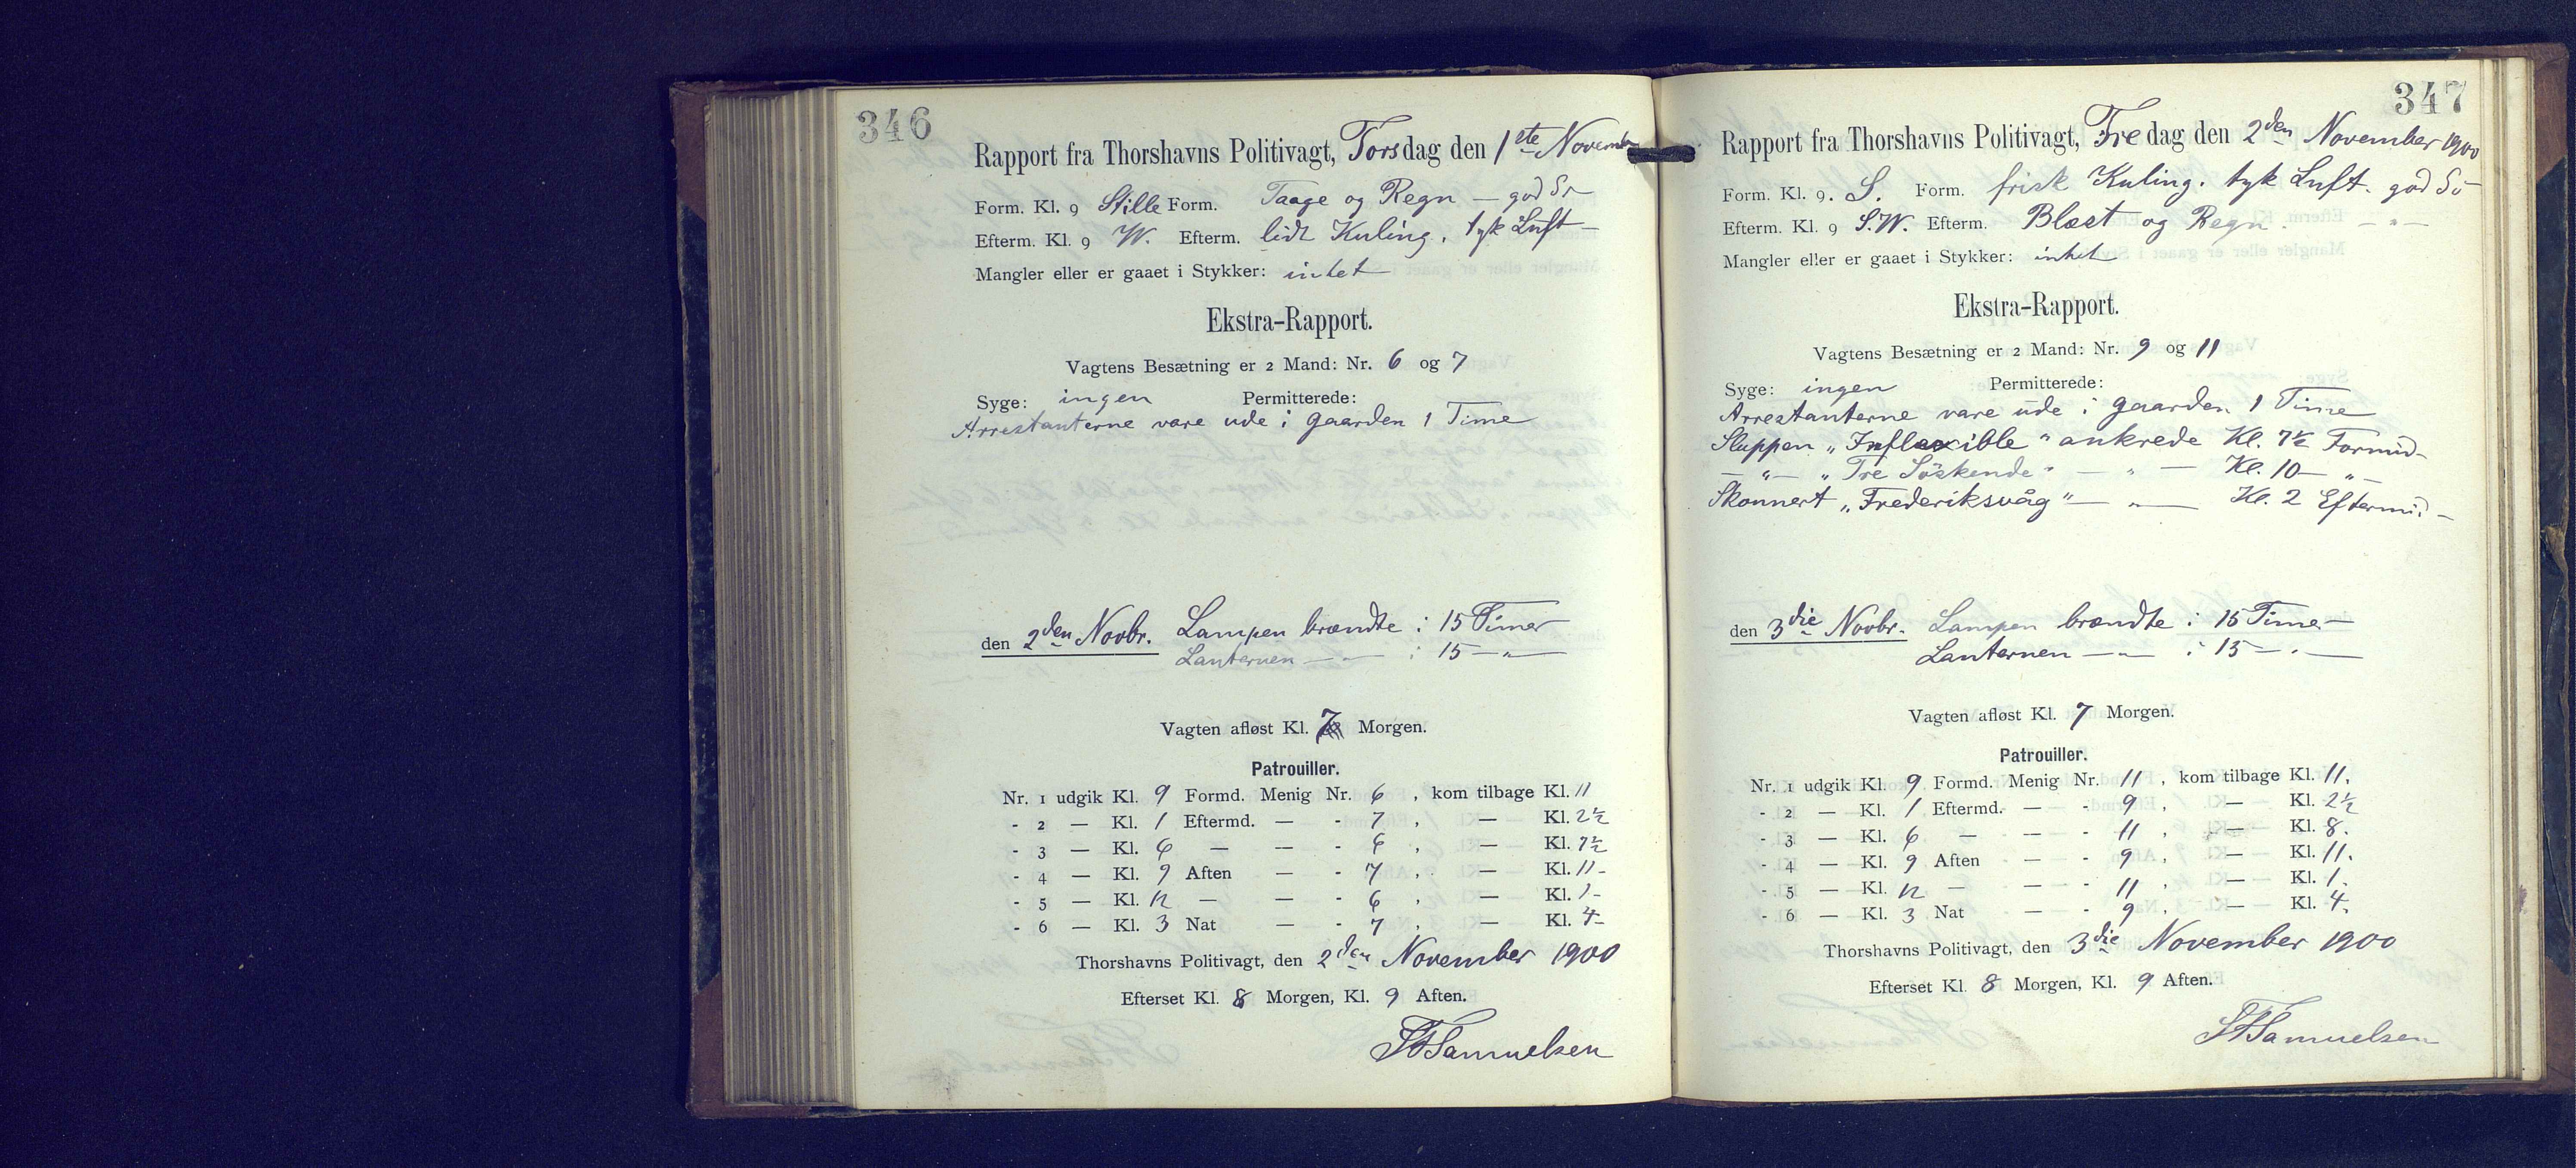 346
Rapport fra Thorshavns Politivagt, Torsdag den 1ste November
Form. Kl. 9 Stille Form. Taage og Regn — god Sø
Efterm. Kl. 9 W. Efterm. lidt Kuling, tyk Luft —
Mangler eller er gaaet i Stykker: intet
Ekstra-Rapport.
Vagtens Besætning er 2 Mand: Nr. 6 og 7
Syge: ingen Permitterede:
Arrestanterne vare ude i Gaarden 1 Time
den 2den Novbr. Lampen brændte i 15 Timer
Lanternen — " — i 15 — " —
Vagten afløst Kl. 7 Morgen.
Patrouiller.
Nr. 1 udgik Kl. 9 Formd. Menig Nr. 6, kom tilbage Kl. 11
- 2 — Kl. 1 Eftermd. — - 7, — Kl. 2½
- 3 — Kl. 6 — — - 6, — Kl. 7½
- 4 — Kl. 9 Aften — - 7, — Kl. 11 -
- 5 — Kl. 12 — — - 6, — Kl. 1 -
- 6 — Kl. 3 Nat — - 7, — Kl. 4 -
Thorshavns Politivagt, den 2den November 1900
Efterset Kl. 8 Morgen, Kl. 9 Aften.
Samuelsen
347
Rapport fra Thorshavns Politivagt, Fredag den 2den November 1900
Form. Kl. 9. S. Form. frisk Kuling. tyk Luft. god Sø
Efterm. Kl. 9 S.W. Efterm. Blæst og Regn. — " —
Mangler eller er gaaet i Stykker: intet
Ekstra-Rapport.
Vagtens Besætning er 2 Mand: Nr. 9 og 11
Syge: ingen Permitterede:
Arrestanterne vare ude i Gaarden 1 Time
Sluppen „Inflexible" ankrede Kl. 7½ Formid-
— " — „Tre Söskende" — " — Kl. 10 — " —
Skonnert „Frederiksvåg" — " — Kl. 2 Eftermid -
den 3die Novbr. Lampen brændte i 15 Timer
Lanternen — " — i 15 — " —
Vagten afløst Kl. 7 Morgen.
Patrouiller.
Nr. 1 udgik Kl. 9 Formd. Menig Nr. 11, kom tilbage Kl. 11.
- 2 — Kl. 1 Eftermd. — - 9, — Kl. 2½
- 3 — Kl. 6 — — - 11, — Kl. 8.
- 4 — Kl. 9 Aften — - 9, — Kl. 11.
- 5 — Kl. 12 — — - 11, — Kl. 1.
- 6 — Kl. 3 Nat — - 9, — Kl. 4.
Thorshavns Politivagt, den 3die November 1900
Efterset Kl. 8 Morgen, Kl. 9 Aften.
Samuelsen